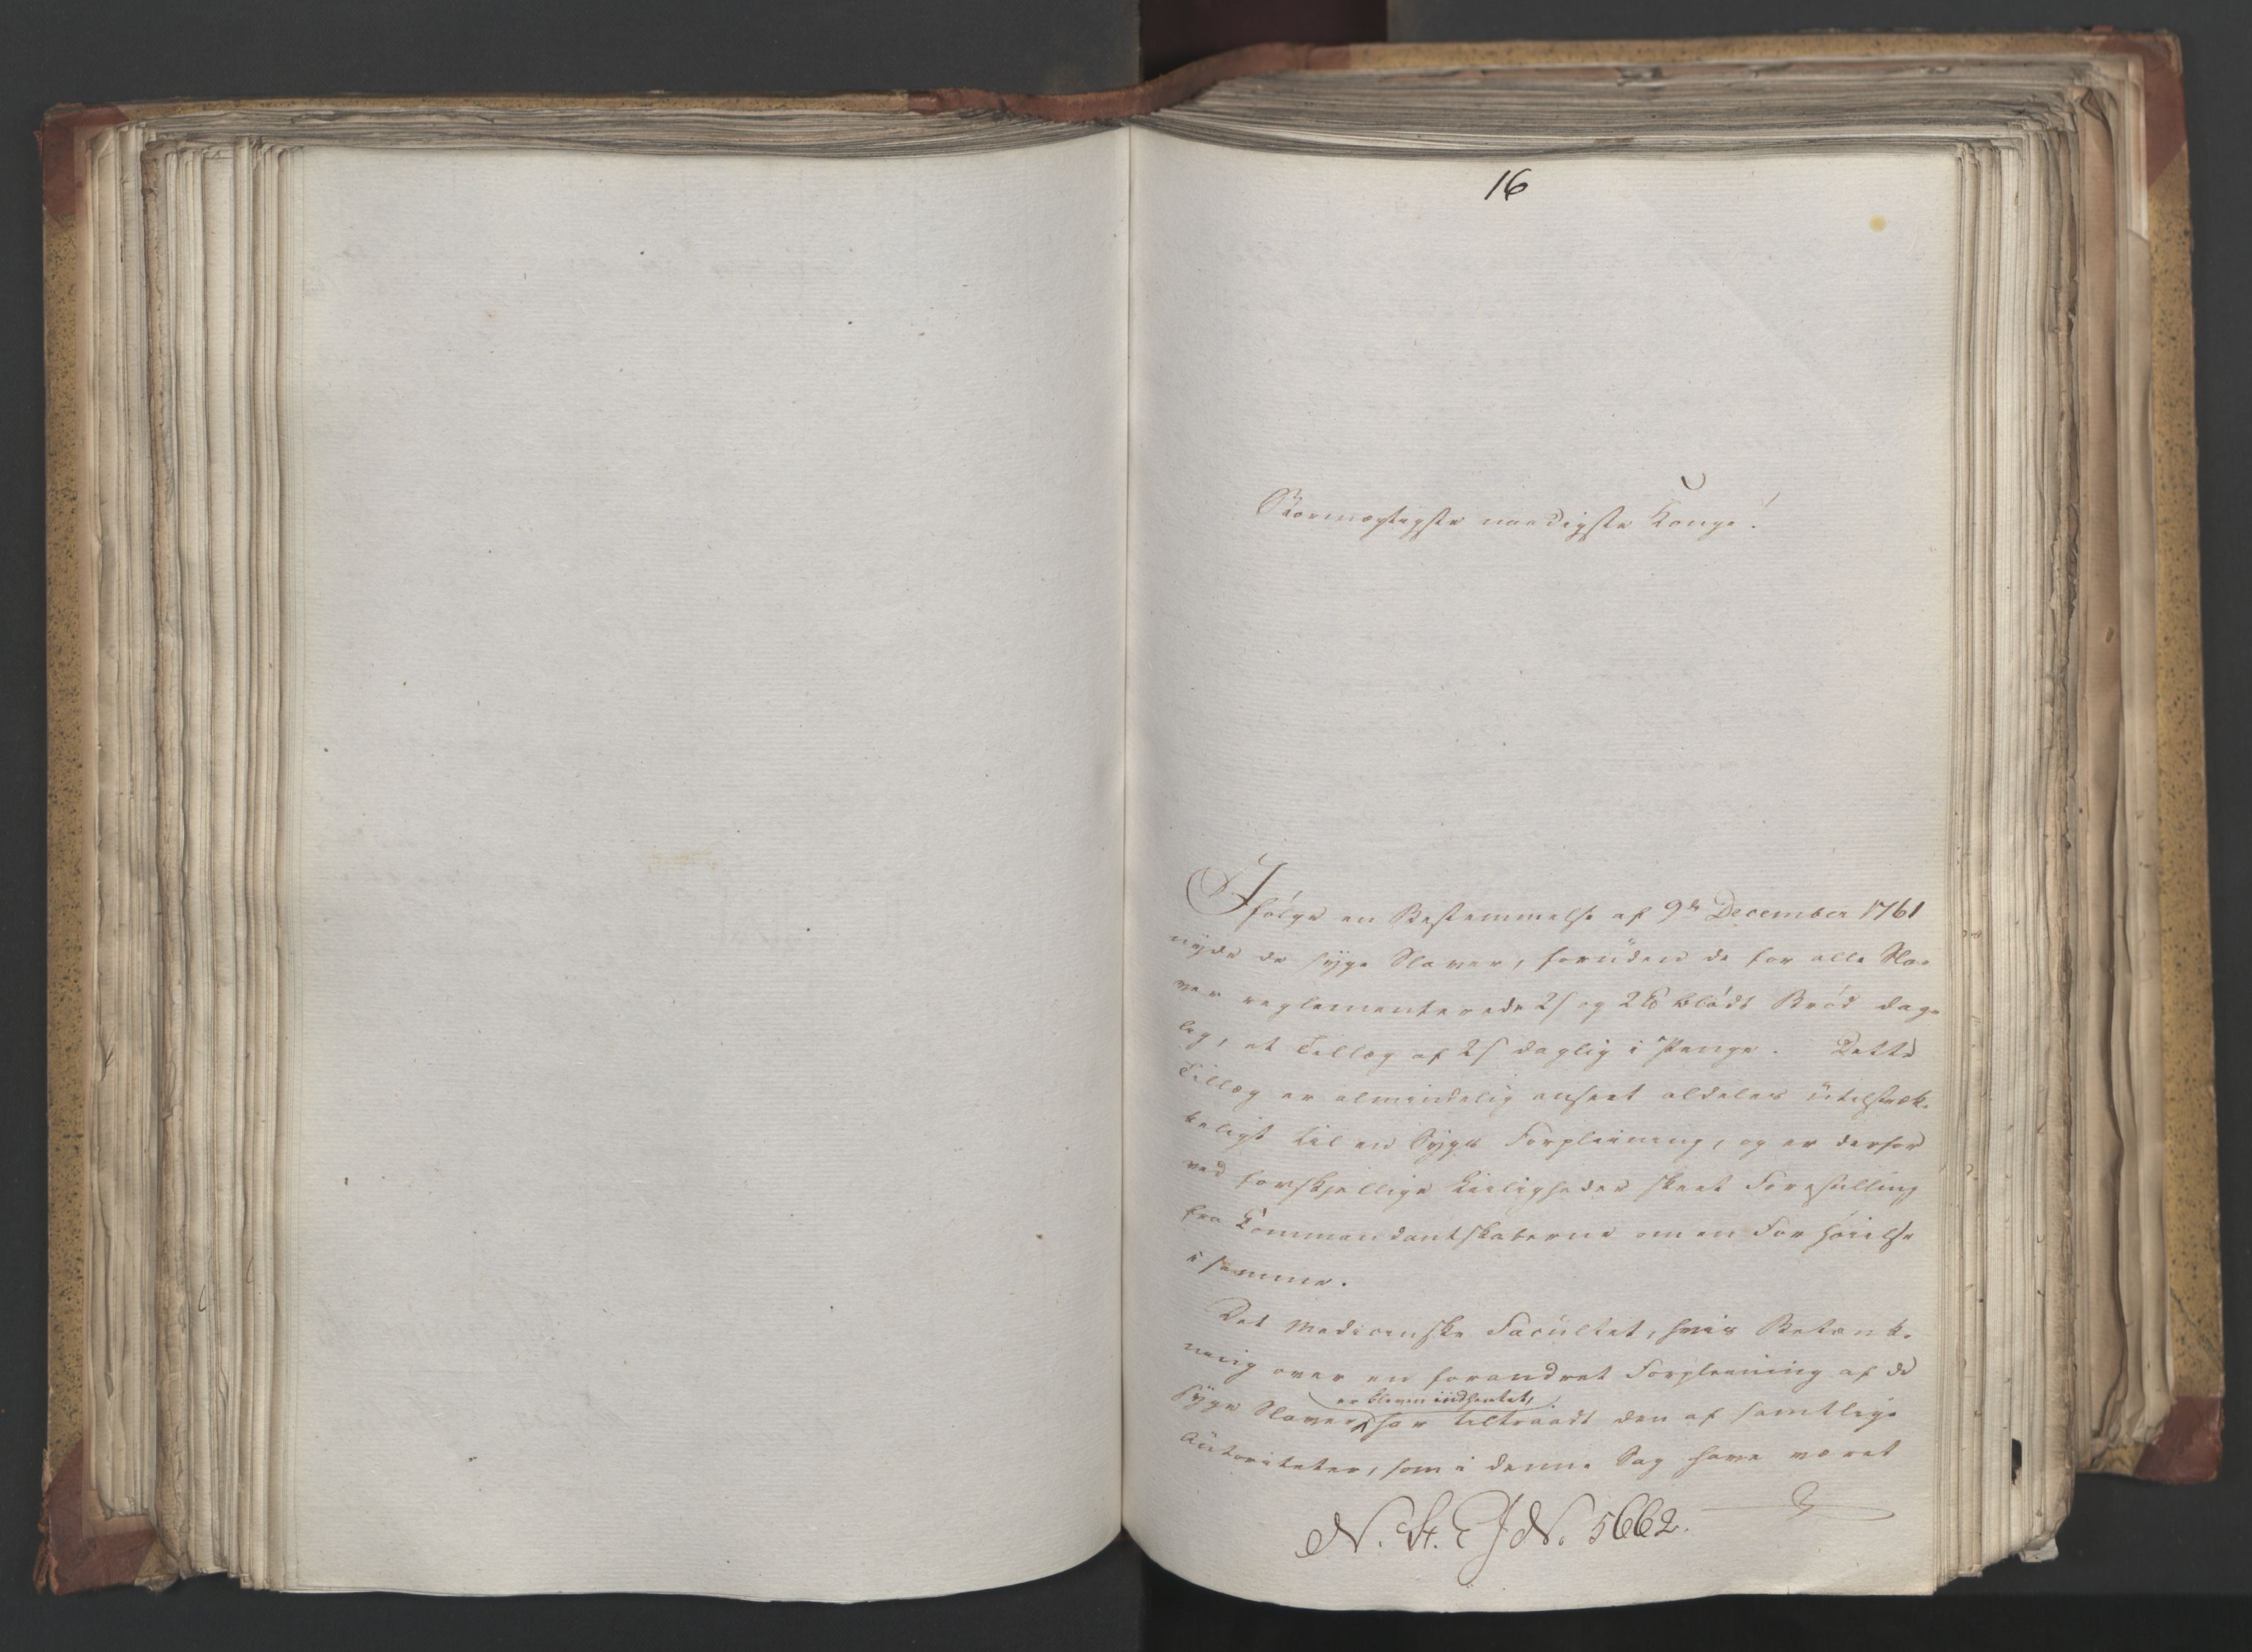 16
Stormægtigste naadigste Konge!
Ifølge en Bestemmelse af 9de December 1761
nyde de syge Slaver, foruden de for alle Sla-
ver reglementerede 2 s og 2 ℔ blødt Brød dag-
lig, et Tillæg af 2 s daglig i Penge. Dette
Tillæg er almindelig anseet aldeles utilstræk-
keligt til en Sygs Forpleining, og er derfor
ved forskjellige Leiligheder skeet Forestilling
fra Commandantskaberne om en Forhøielse
i samme.
Det medicinske Facultet, hvis Betænk-
ning over en forandret Forpleining af de
syge Slaver er bleven indhentet, har tiltraadt den af samtlige
Autoriteter, som i denne Sag have været
N. A. J No. 5662.